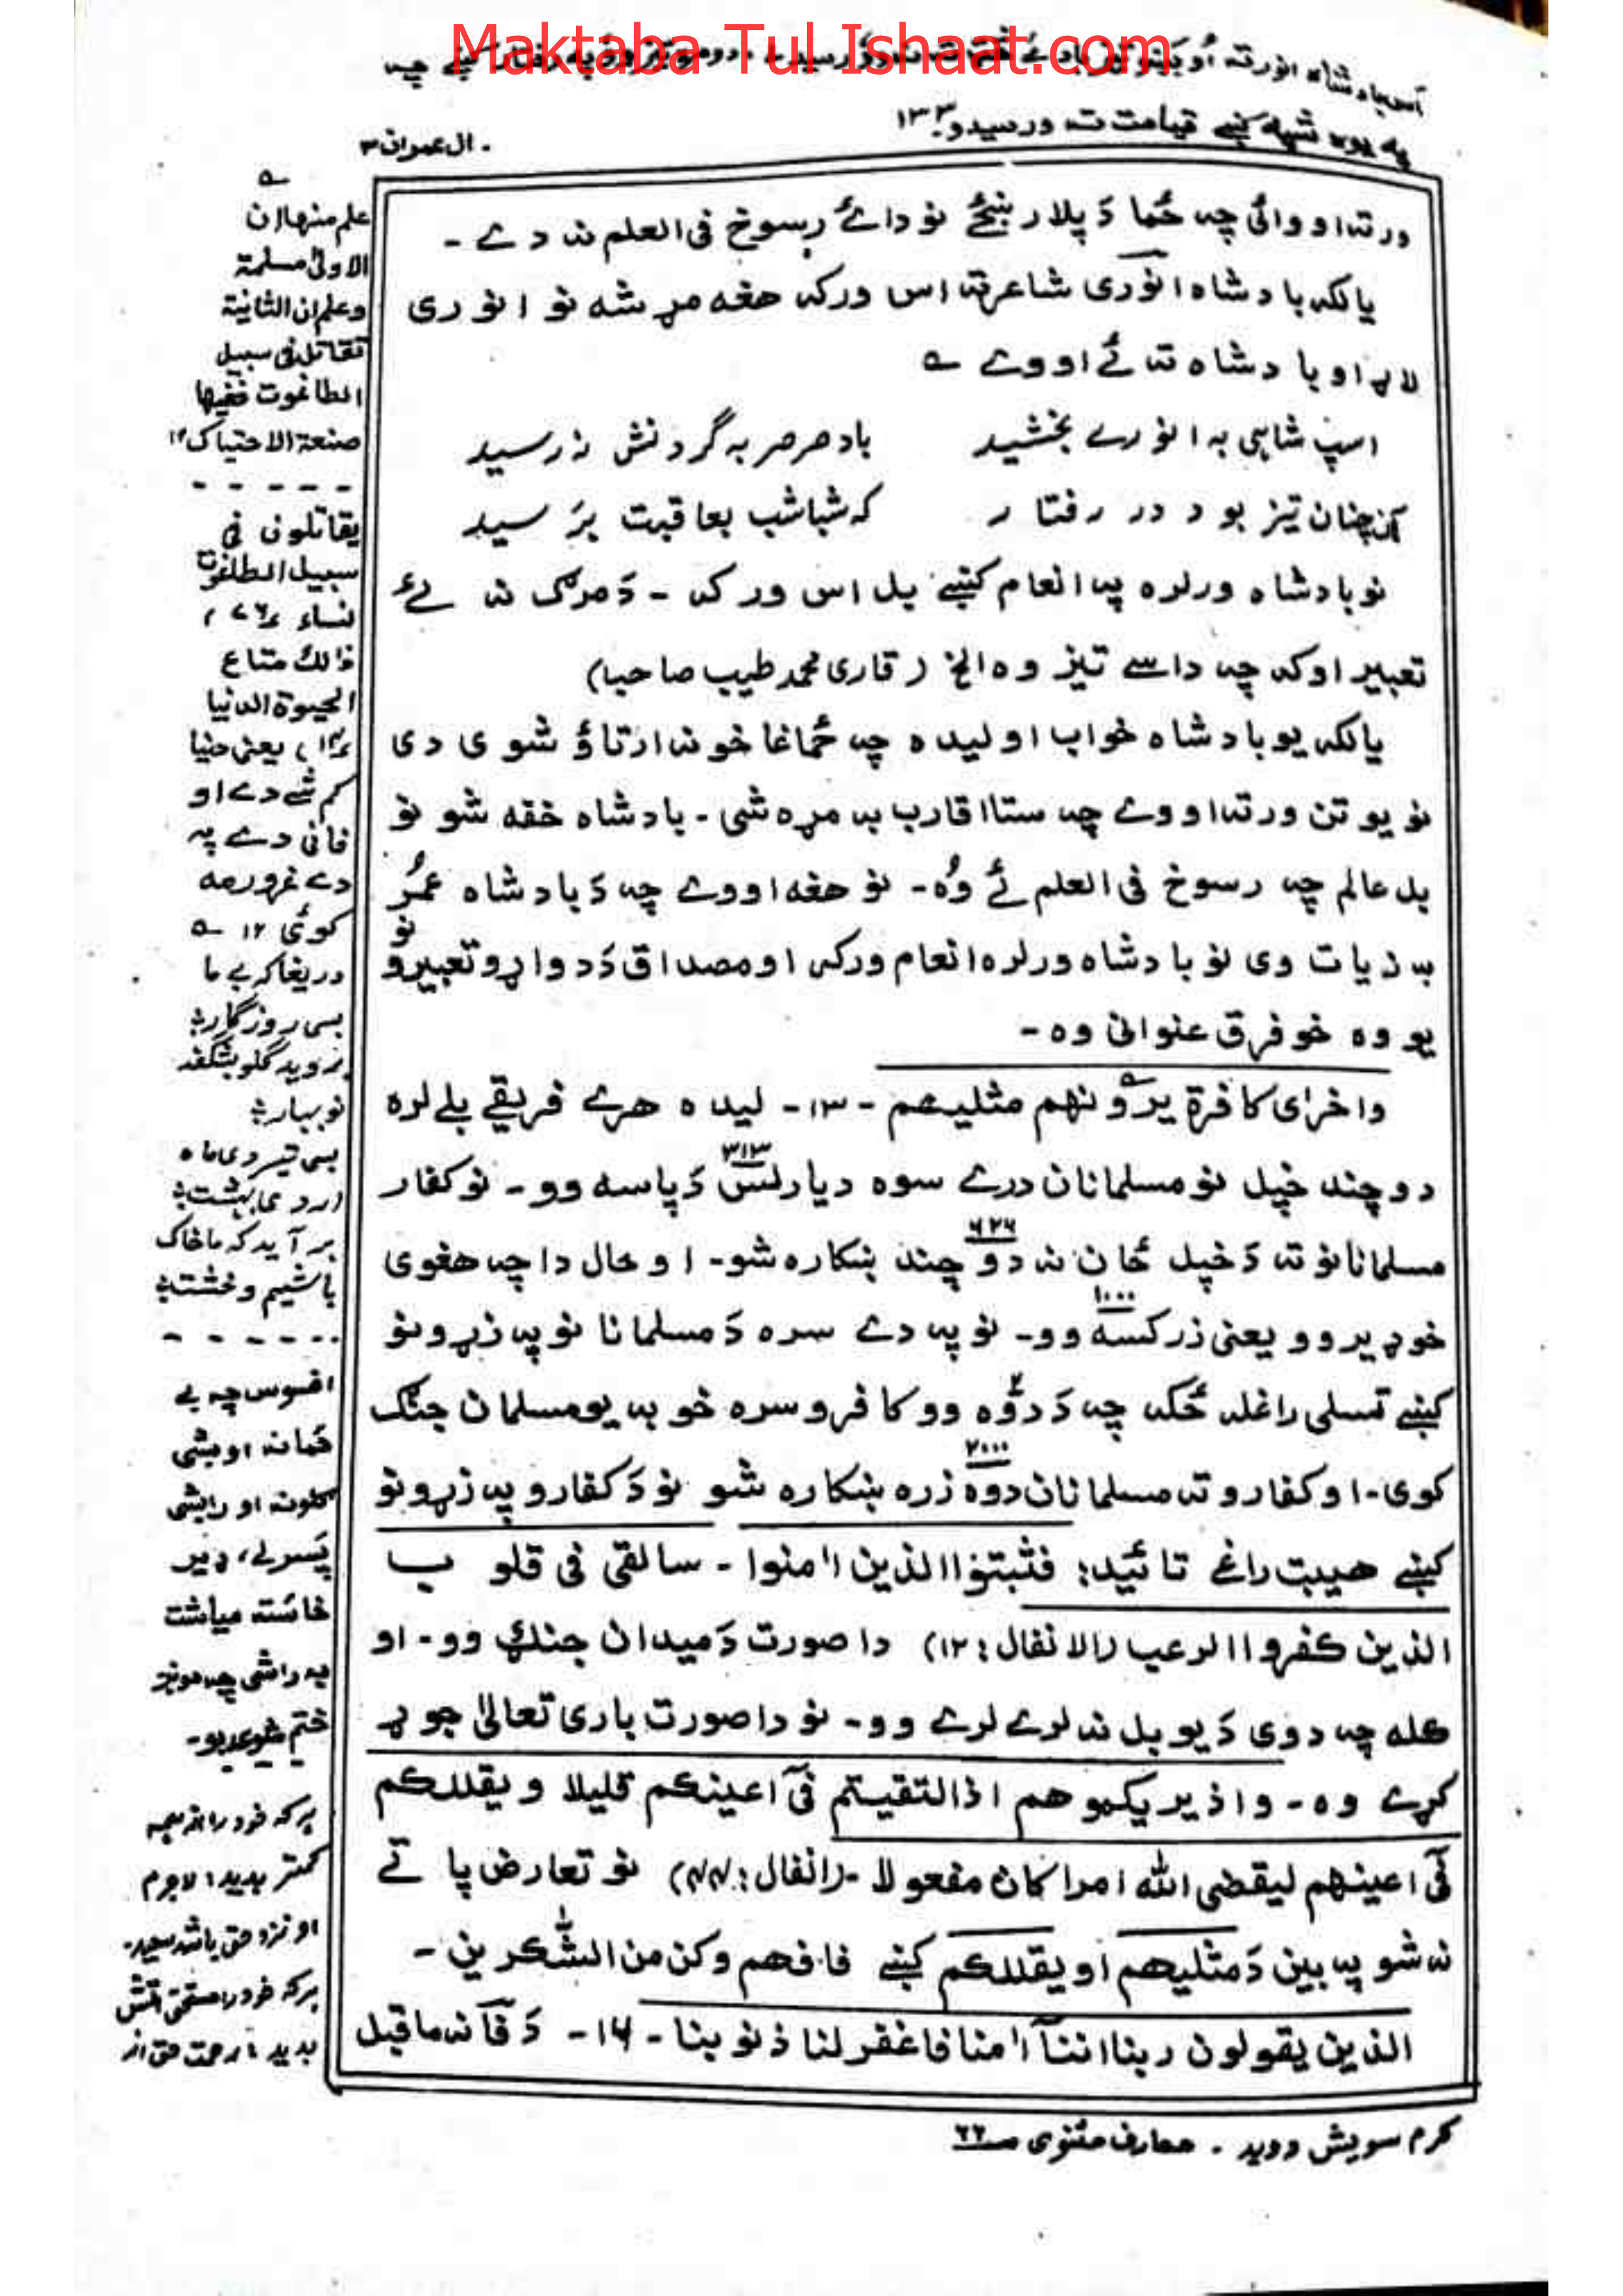 Maktaba Tul Ishaat.com
په یوه شپه کښے قیامت ته ورسیدو۔ ۱۳۳
ال عمران ۳
ورته اووائی چه ځما دَ پلار بنځے نو دائے رسوخ فی العلم نه دے ۔
یالکه بادشاه انوری شاعر ته اس ورکه هغه مړ شه نو انوری
لاړ او بادشاه ته ئے اووے ؎
اسپ شاہی به انورے بخشید باد صرصر به گردنش نرسید
آنچنان تیز بود در رفتار که شباشب بعاقبت برَسید
نو بادشاه ورلره په انعام کښے بل اس ورکه ۔ دَ مرګ نه ئے
تعبیر اوکه چه داسے تیز وه الخ (قاری محمد طیب صاحب)
یالکه یو بادشاه خواب اولیده چه ځما غاخونه ارتاؤ شوی دی
نو یو تن ورته اووے چه ستا اقارب به مړه شی ۔ بادشاه خفه شو نو
بل عالم چه رسوخ فی العلم ئے وُه ۔ نو هغه اووے چه دَ بادشاه عمُر
به زیات وی نو بادشاه ورلره انعام ورکه او مصداق دَ دواړو تعبیرو نو
یو وه خو فرق عنوانی وه ۔
واخرٰی کافرة یرونهم مثلیهم ۔ ۱۳ ۔ لیده هرے فریقے بلے لره
دوچند خپل نو مسلمانان درے سوه دیارلس ۳۱۳ دَپاسه وو ۔ نو کفار
مسلمانانو ته دَ خپل ځان نه دوچند ۶۲۶ ښکاره شو ۔ او حال دا چه هغوی
خو ډیر وو یعنی زر کسه ۱۰۰۰ وو ۔ نو په دے سره دَ مسلمانانو په زړونو
کښے تسلی راغله ځکه چه دَ دوُه ۲ وو کافرو سره خو به یو مسلمان جنګ
کوی ۔ او کفارو ته مسلمانان دوه زره ۲۰۰۰ ښکاره شو نو دَ کفارو په زړونو
کښے هیبت راغے تائید: فثبتوا الذین اٰمنوا ۔ سالقی فی قلوب
الذین کفروا الرعب (الانفال: ۱۲) دا صورت دَ میدان جنګ وو ۔ او
کله چه دوی دَ یو بل نه لرے لرے وو ۔ نو دا صورت باری تعالیٰ جوړ
کړے وه ۔ واذ یریکموهم اذ التقیتم فی اعینکم قلیلا ویقللکم
فی اعینهم لیقضی الله امرا کان مفعولا ۔ (انفال: ۴۴) نو تعارض پاتے
نه شو په بین دَ مثلیهم او یقللکم کښے فافهم وکن من الشٰکرین ۔
الذین یقولون ربنا اننآ اٰمنا فاغفر لنا ذنوبنا ۔ ۱۶ ۔ دَ فآ نه ماقبل
؎
علم منها ان
الاولیٰ مسلمة
وعلم ان الثانیة
تقاتل فی سبیل
الطاغوت ففیها
صنعة الاحتباک ۱۲
- - - - -
یقاتلون فی
سبیل الطاغوت
نساء ۷۶
ذالك متاع
الحیوة الدنیا
۱۴، یعنی دنیا
کم شے دے او
فانی دے په
دے غرور مه
کوئی ۱۲ ؎
دریغا که بے ما
بسی روزگار
بروید گل و بشگفد
نوبهار
بسی تیر و دی ماه
اردی بهشت
بر آید که ما خاک
باشیم و خشت
- - - - - -
افسوس چه بے
ځمانه اوبشی
ګلونه او رابشی
پَسرلے، ډیر
خائسته میاشت
به راشی چه مونږ
ختم شوی یو ۔
ہر کہ خود را از ہمہ
کمتر بدید: لاجرم
او نزد حق باشد سعید۔
ہر کہ خود را مستحق
بدید: رحمت حق از
کرم سویش دوید ۔ معارف مثنوی صـ ۲۲